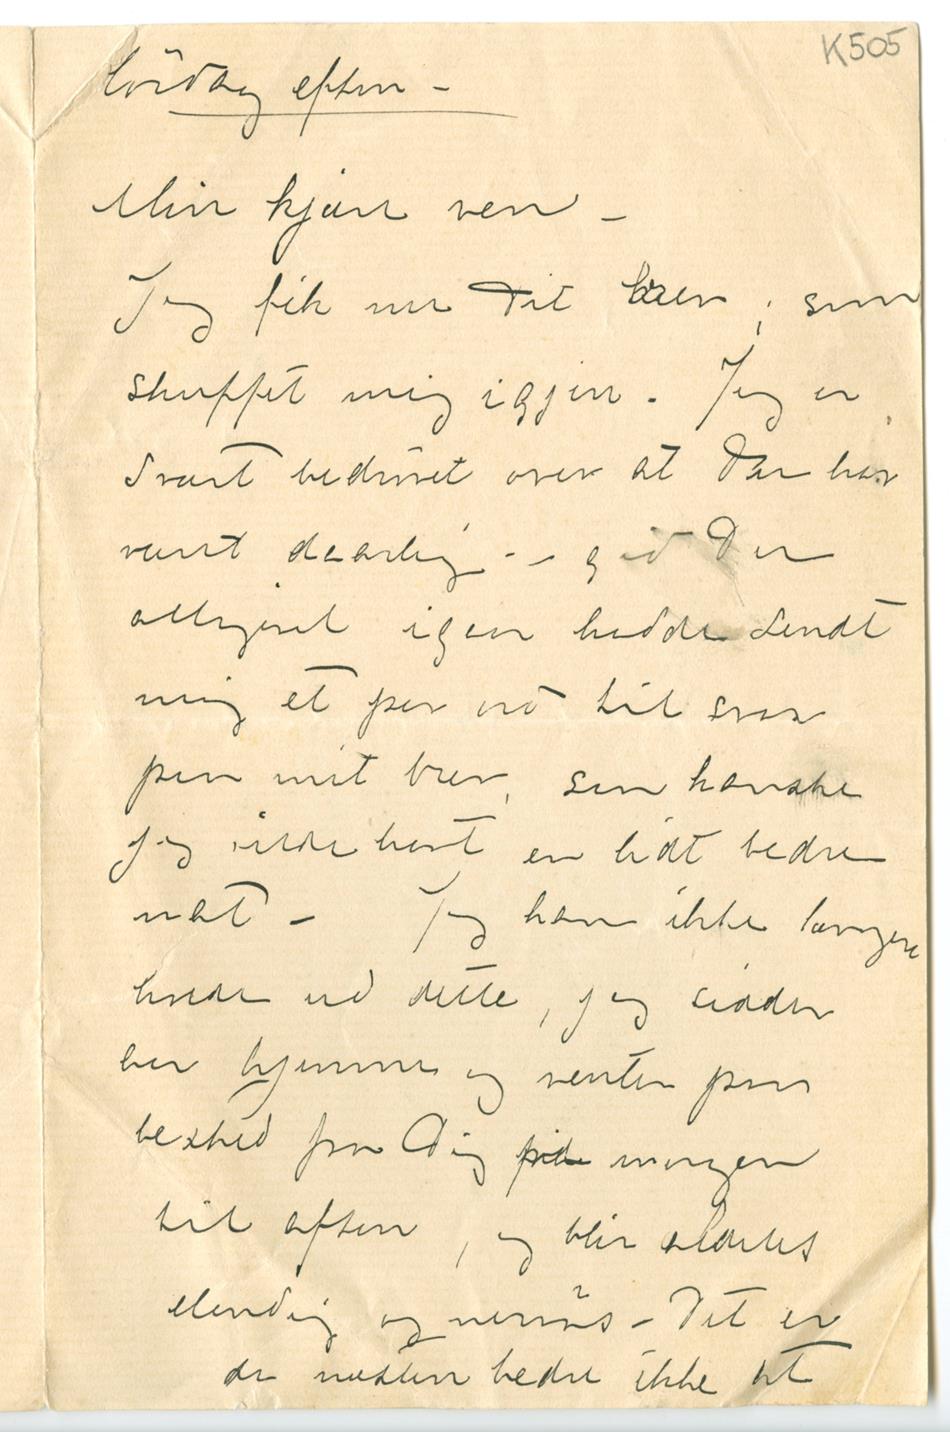 K505
Lördag eften –
Min kjære ven –
Jeg fik nu Dit brev, som
skuffet mig igjen. Jeg er
svært bedrövet over at Du har
været daarlig – – gid Du
alligevel igen hadde sendt
mig et par ord til svar
paa mit brev, saa kanske
jeg vilde havt en lidt bedre
nat – Jeg kan ikke længere
holde ud dette, jeg sidder
her hjemme og venter paa
besked fra Dig fra morgen
til aften, og blir aldeles
elendig og nervös – Det er
da næsten bedre ikke at